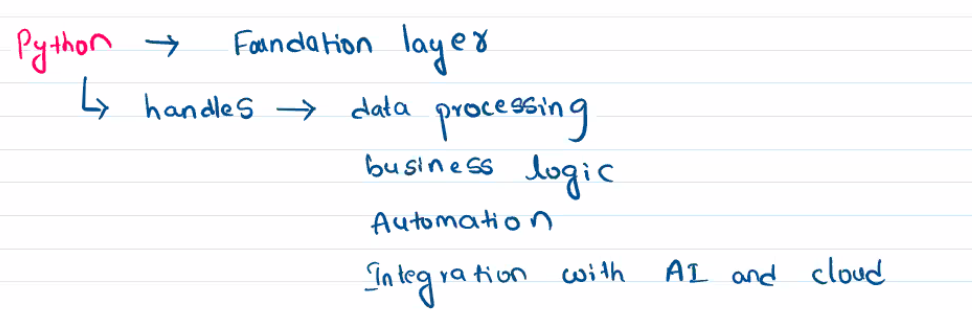 Python → Foundation layer
↳ handles → data processing
business logic
Automation
Integration with AI and cloud